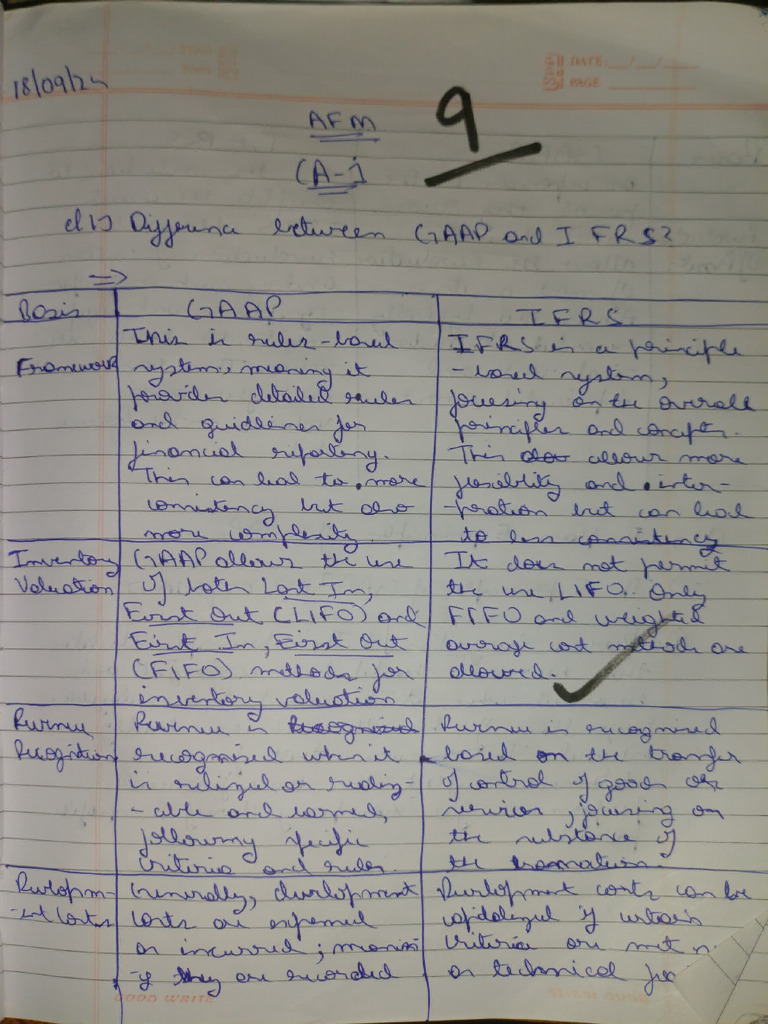 18/09/24
DATE: __/__/__
PAGE
AFM
9
(A-1)
Q1) Difference between GAAP and IFRS?
=>
Basis
GAAP
IFRS
Framework
This is rules-based
system, meaning it
provides detailed rules
and guidelines for
financial reporting.
This can lead to more
consistency but also
more complexity.
IFRS is a principle
-based system,
focusing on the overall
principles and concepts.
This allows more
flexibility and inter-
-pration but can lead
to less consistency
Inventory
Valuation
GAAP allows the use
of both Last In,
First Out (LIFO) and
First In, First Out
(FIFO) methods for
inventory valuation
It does not permit
the use LIFO. Only
FIFO and weighted
average cost methods are
allowed.
Revenue
Recognition
Revenue is
recognised when it
is realized or realiz-
-able and earned,
following specific
criteria and rules.
Revenue is recognised
based on the transfer
of control of goods or
services, focusing on
the substance of
the
Developm-
-ent Costs
Generally, development
costs are expensed
as incurred;
they are recorded
Development costs can be
capitalized if certain
criteria are met
as technical